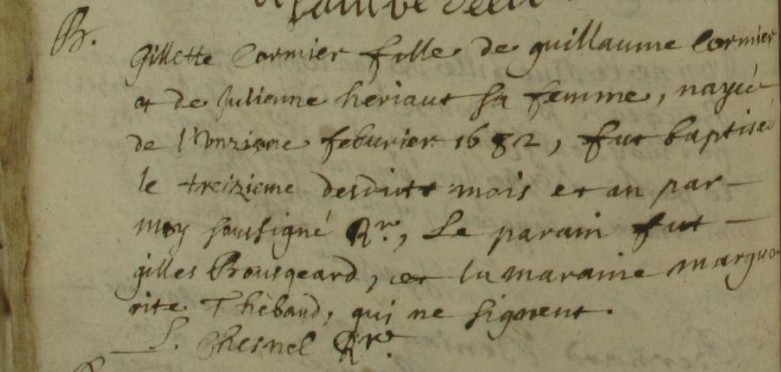 B.
Gillette Cormier fille de guillaume Cormier
et de Julienne heriaut sa femme, nayée
de l'onzieme feburier 1682, fut baptisée
le treizieme desdits mois et an par
moy sousigné Rr., Le parain fut
gilles Brousgeard, et la maraine margue
rite Thébaud, qui ne signent.
Chesnel Rr.